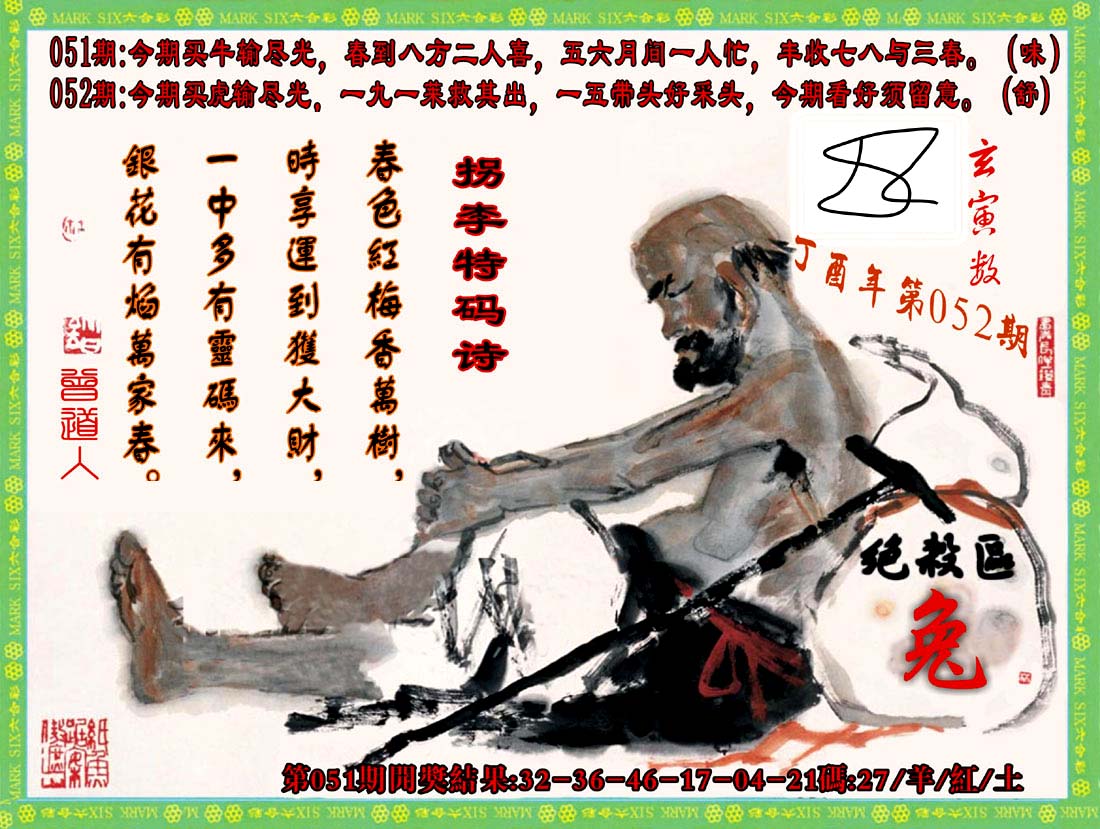 MARK SIX六合彩 MARK SIX六合彩 MARK SIX六合彩 MARK SIX六合彩 MARK SIX六合彩 MARK SIX六合彩
051期:今期买牛输尽光，春到八方二人喜，五六月间一人忙，丰收七八与三春。(味)
052期:今期买虎输尽光，一九一莱救其出，一五带头好采头，今期看好须留意。(舒)
玄寅数
丁酉年第052期
拐李特码诗
春色紅梅香萬樹，
時享運到獲大財，
一中多有靈碼來，
銀花有焰萬家春。
曾道人
绝殺區
兔
第051期開獎結果:32-36-46-17-04-21碼:27/羊/紅/土